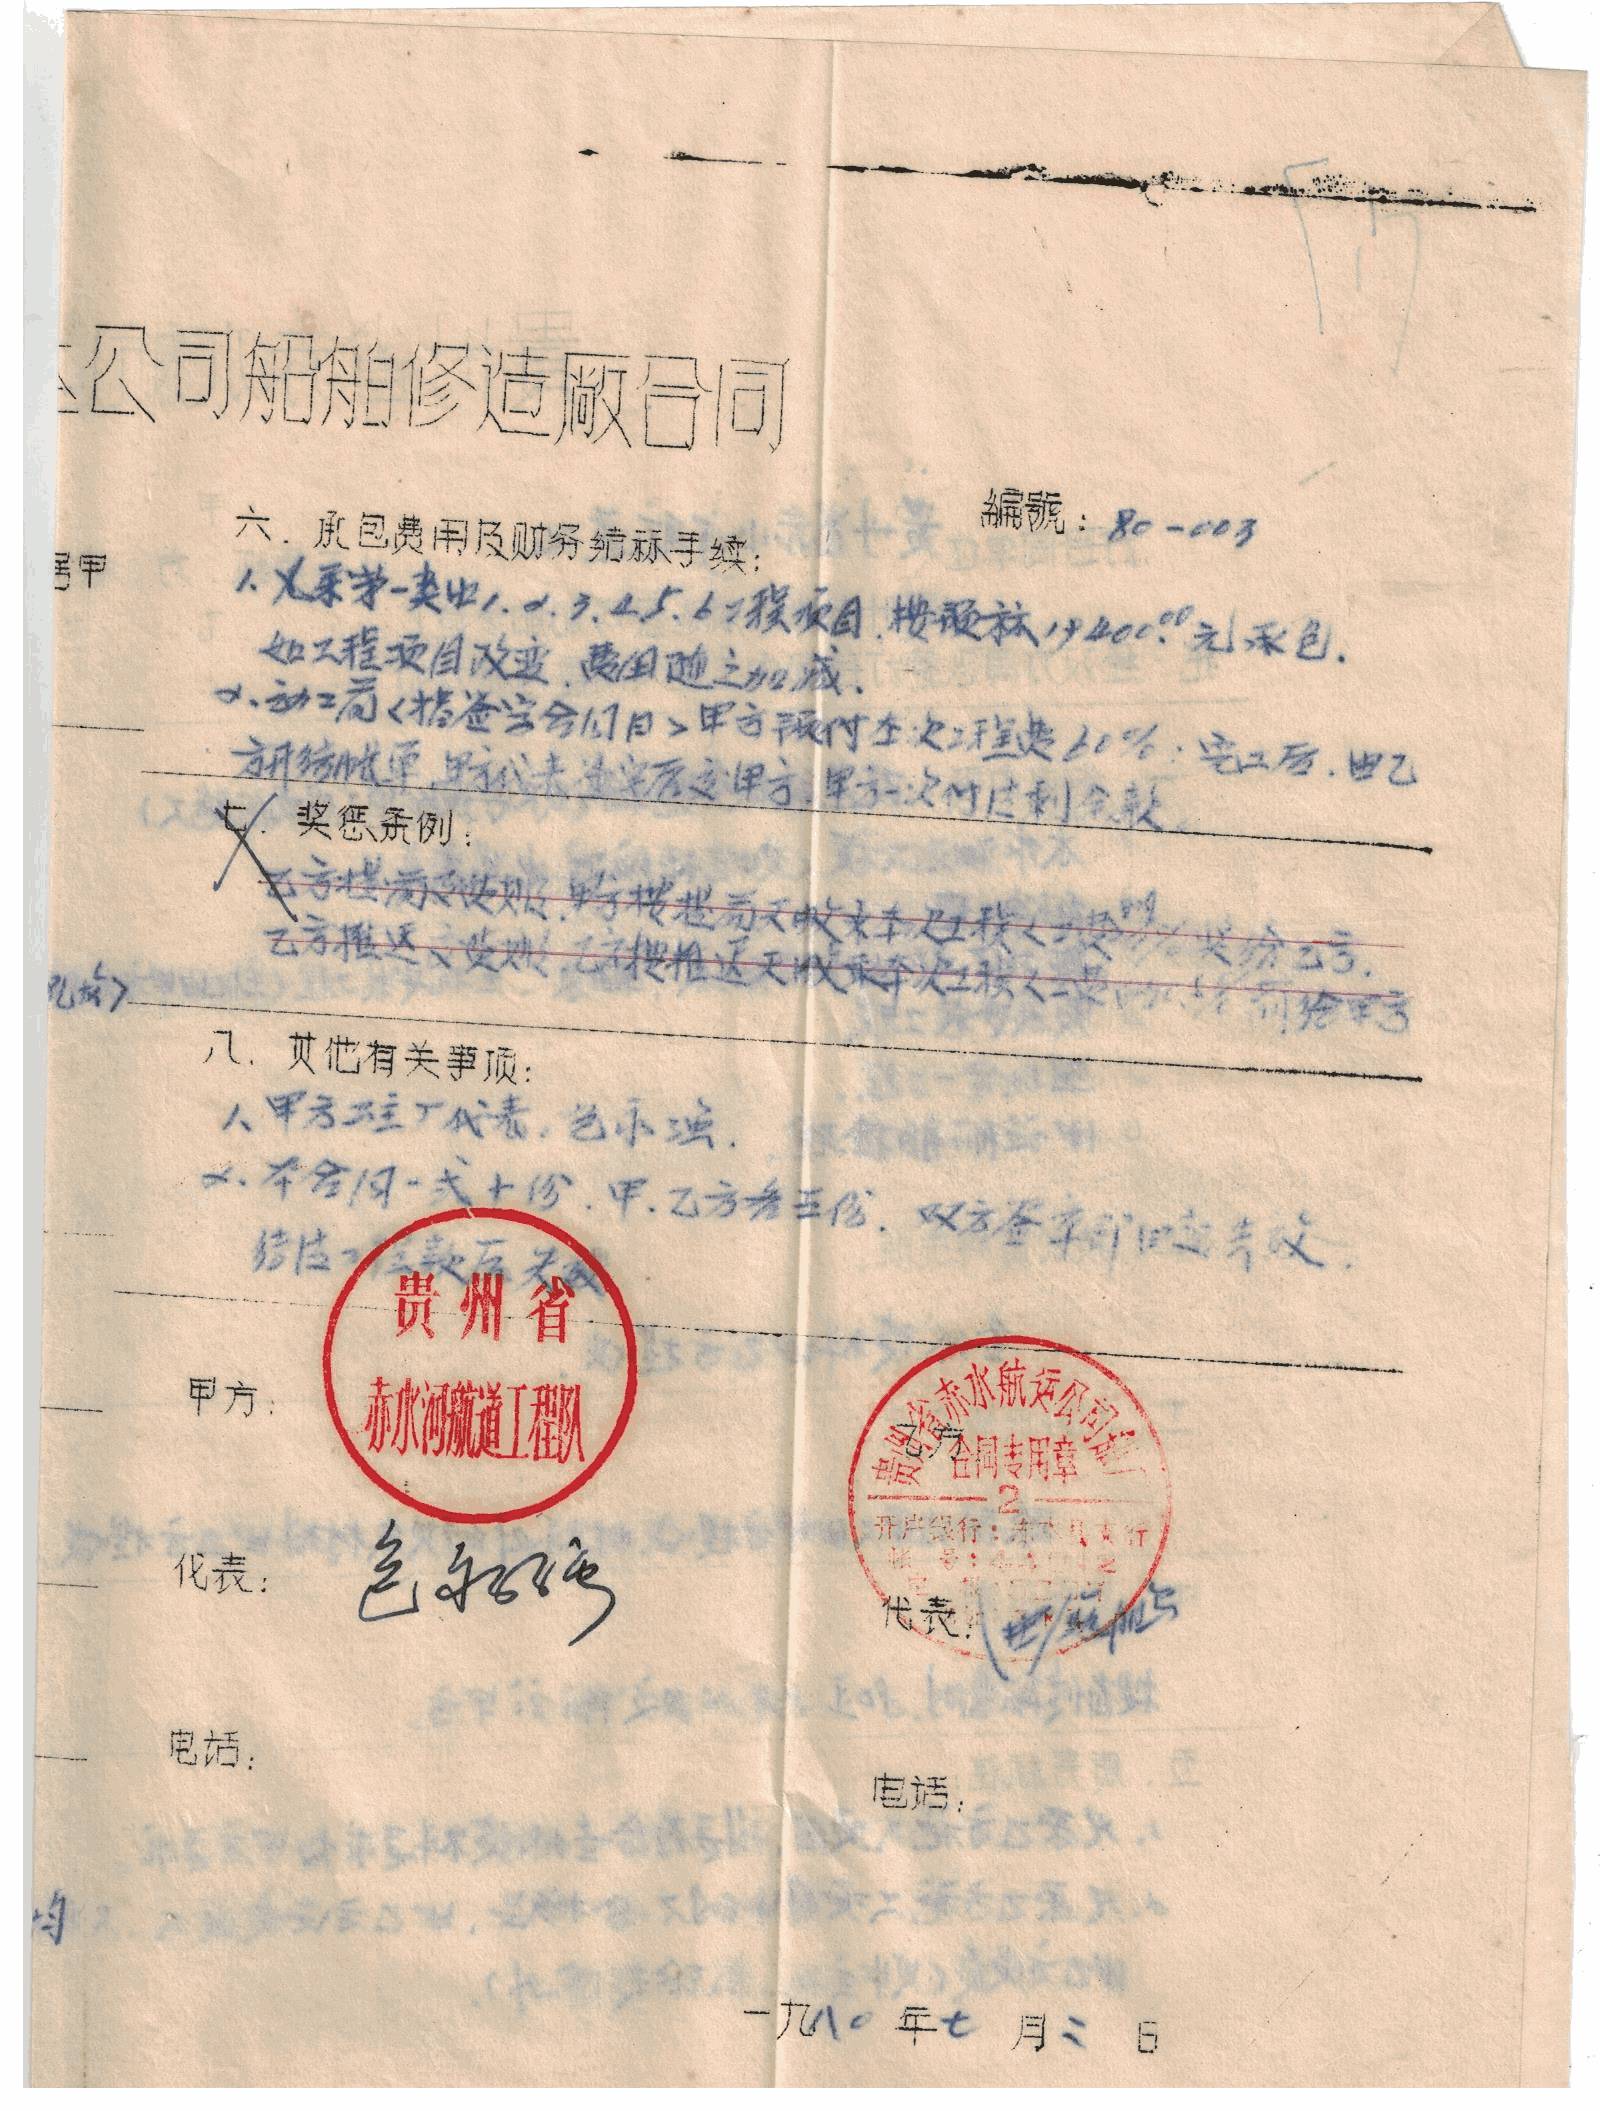 公司船舶修造厰合同
編號：80-003
居甲
六．承包费用及财务结标手续：
1.义乘第一类中1.2.3.4.5.6工程项目.按预标19400.00元承包.
如工程项目改变.费用随之加减.
2.动工前<指签字合同日>甲方预付本次工程费60%；完工后.由乙
方开结帐单.甲方代表签字后交甲方.甲方一次付清剩余款
七．奖惩条例：
乙方提前交货则.甲方按提前天收乘本次工程<工费 %奖给乙方.
乙方推迟交货则.乙方按推迟天收乘本次工程<工费 罚给甲方
八．其他有关事项：
1.甲方驻厂代表.
2.本合同一式十份.甲.乙方各五份.双方签章即日起生效.
结清工程款后失效
贵州省
赤水河航道工程队
甲方：
贵州省赤水航运公司
乙方
合同专用章
2
开户银行：赤水县支行
帐号：
代表：
代表：
电话：
电话：
均
一九八〇年七月二日